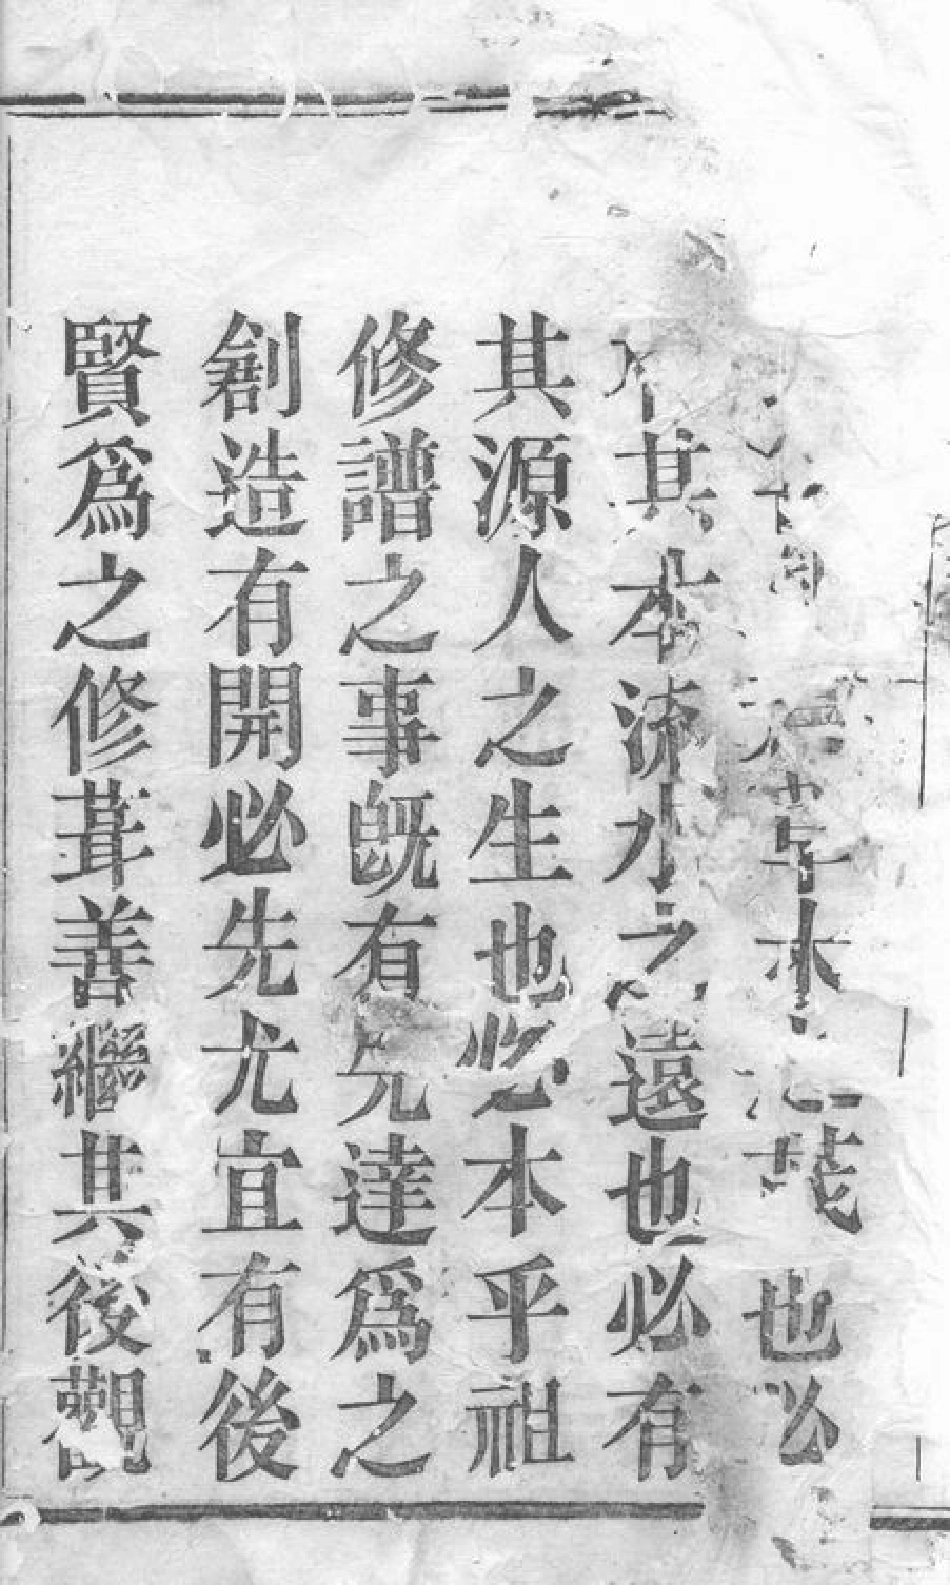 草木茂也必
有其本流水之遠也必有
其源人之生也必本乎祖
修譜之事既有先達爲之
創造有開必先尤宜有後
賢爲之修葺善繼其後觀